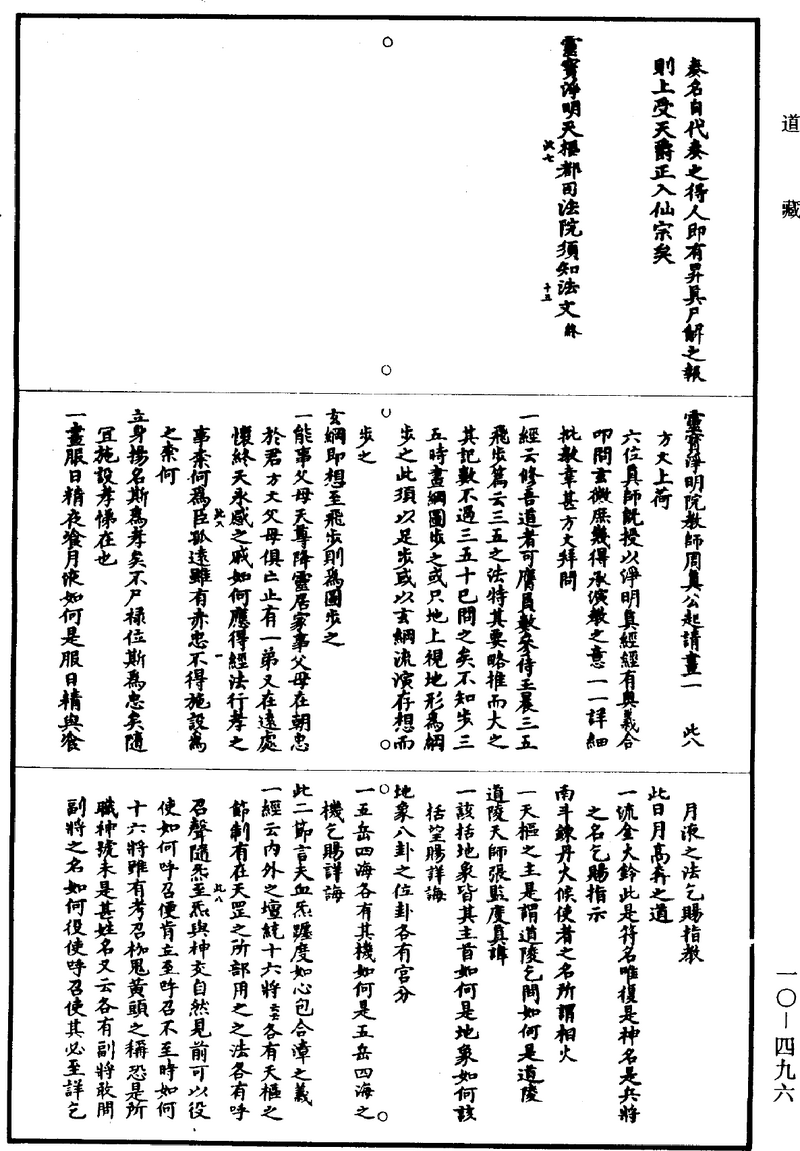 道藏
一〇—四九六
奏名自代奏之得人即有昇真尸解之報
則上受天爵正入仙宗矣
靈寶淨明天樞都司法院須知法文 終
此七
十五
靈寶淨明院教師周真公起請畫一 此八
方文上荷
六位真師旣授以淨明真經經有奧義合
叩問玄微庶幾得承演教之意一一詳細
批教幸甚方文拜問
一經云修吾道者可膺員數參侍玉晨三五
飛步篇云三五之法特其要略推而大之
其記數不過三五十已問之矣不知步三
五時畫綱圖步之或只地上視地形為綱
步之此須以足步或以玄綱流演存想而
步之
玄綱即想至飛步則為圖步之
一能事父母天尊降靈居家事父母在朝忠
於君方文父母俱亡止有一弟又在遠處
懷終天永感之戚如何應得經法行孝之
事柰何為臣孤遠雖有赤忠不得施設為
此八
一
之柰何
立身揚名斯為孝矣不尸祿位斯為忠矣隨
宜施設孝悌在也
一晝服日精夜飡月液如何是服日精與飡
月液之法乞賜指教
此日月高奔之道
一流金火鈴此是符名唯復是神名是兵將
之名乞賜指示
南斗鍊丹火候使者之名所謂相火
一天樞之主是謂道陵乞問如何是道陵
道陵天師張監度真諱
一該括地象皆其主首如何是地象如何該
括望賜詳誨
地象八卦之位卦各有宮分
一五岳四海各有其機如何是五岳四海之
機乞賜詳誨
此二節言夫血炁躔度如心包合漳之義
一經云內外之壇統十六將云云各有天樞之
節制有在天罡之所部用之之法各有呼
召聲隨炁至炁與神交自然見前可以役
此八
使如何呼召便肯立至呼召不至時如何
十六將雖有考召枷鬼黃頭之稱恐是所
職神號未是甚姓名又云各有副將敢問
副將之名如何役使呼召使其必至詳乞